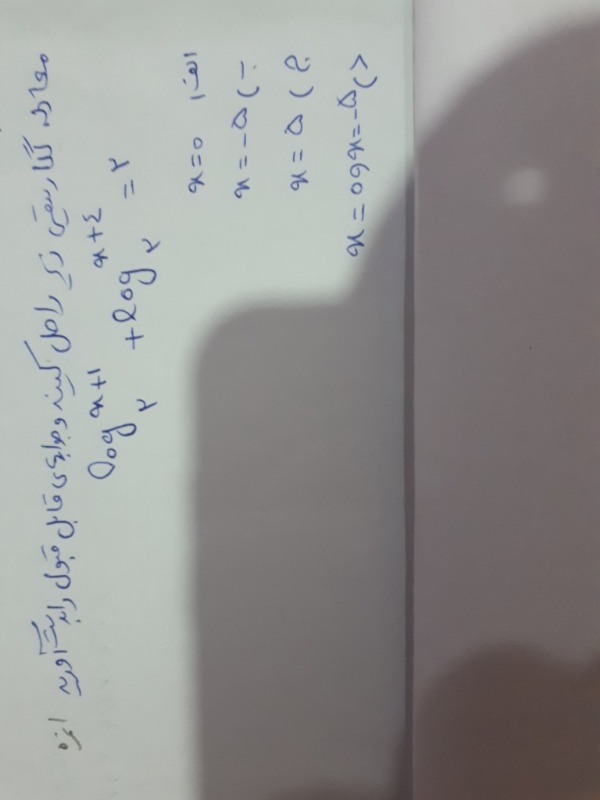 معادله لگاریتمی زیر را حل کنید و جوابهای قابل قبول را بدست آورید ۱ نمره
log₂^(x+1) + log₂^(x+۴) = ۲
الف) x=۰
ب) x=-۵
ج) x=۵
د) x=۰ و x=-۵